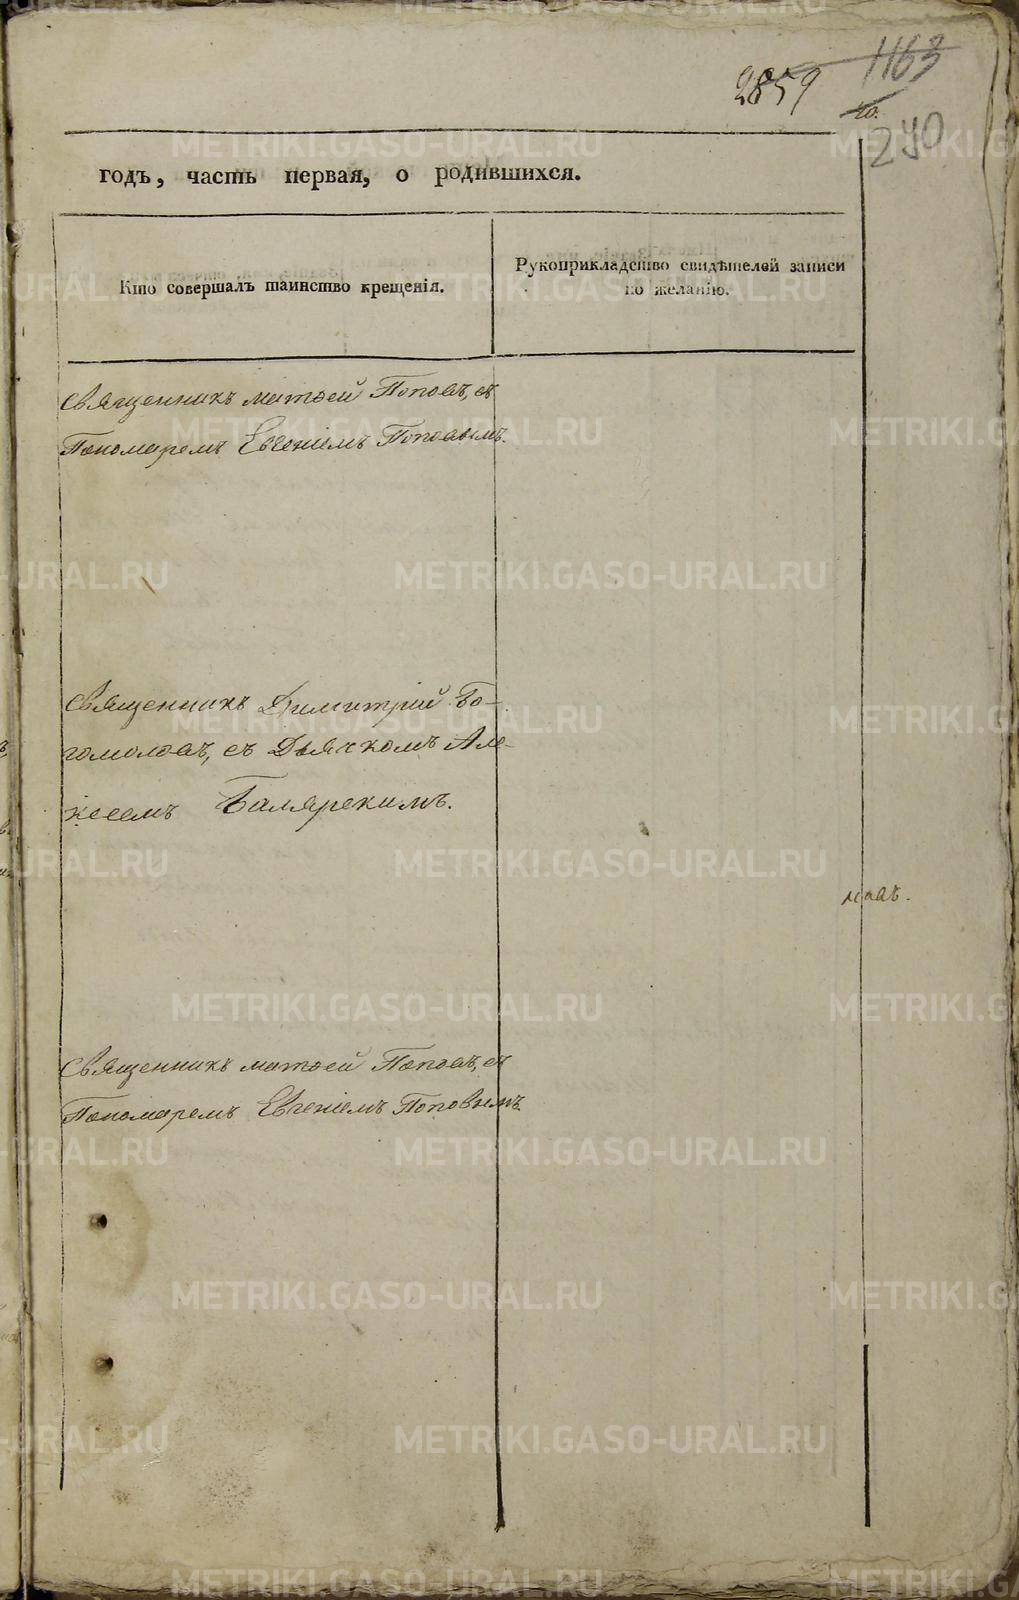 1163
2859
20.
240
годъ, часть первая, о родившихся.
Кто совершалъ таинство крещенія.
Рукоприкладство свидѣтелей записи
по желанію.
Священникъ Матѳей Поповъ, съ
Пономаремъ Евгеніемъ Поповымъ.
Священникъ Димитрій Бо-
гомоловъ, съ Дьячкомъ Але-
ксеемъ Балярскимъ.
Священникъ Матѳей Поповъ, съ
Пономаремъ Евгеніемъ Поповымъ.
METRIKI.GASO-URAL.RU